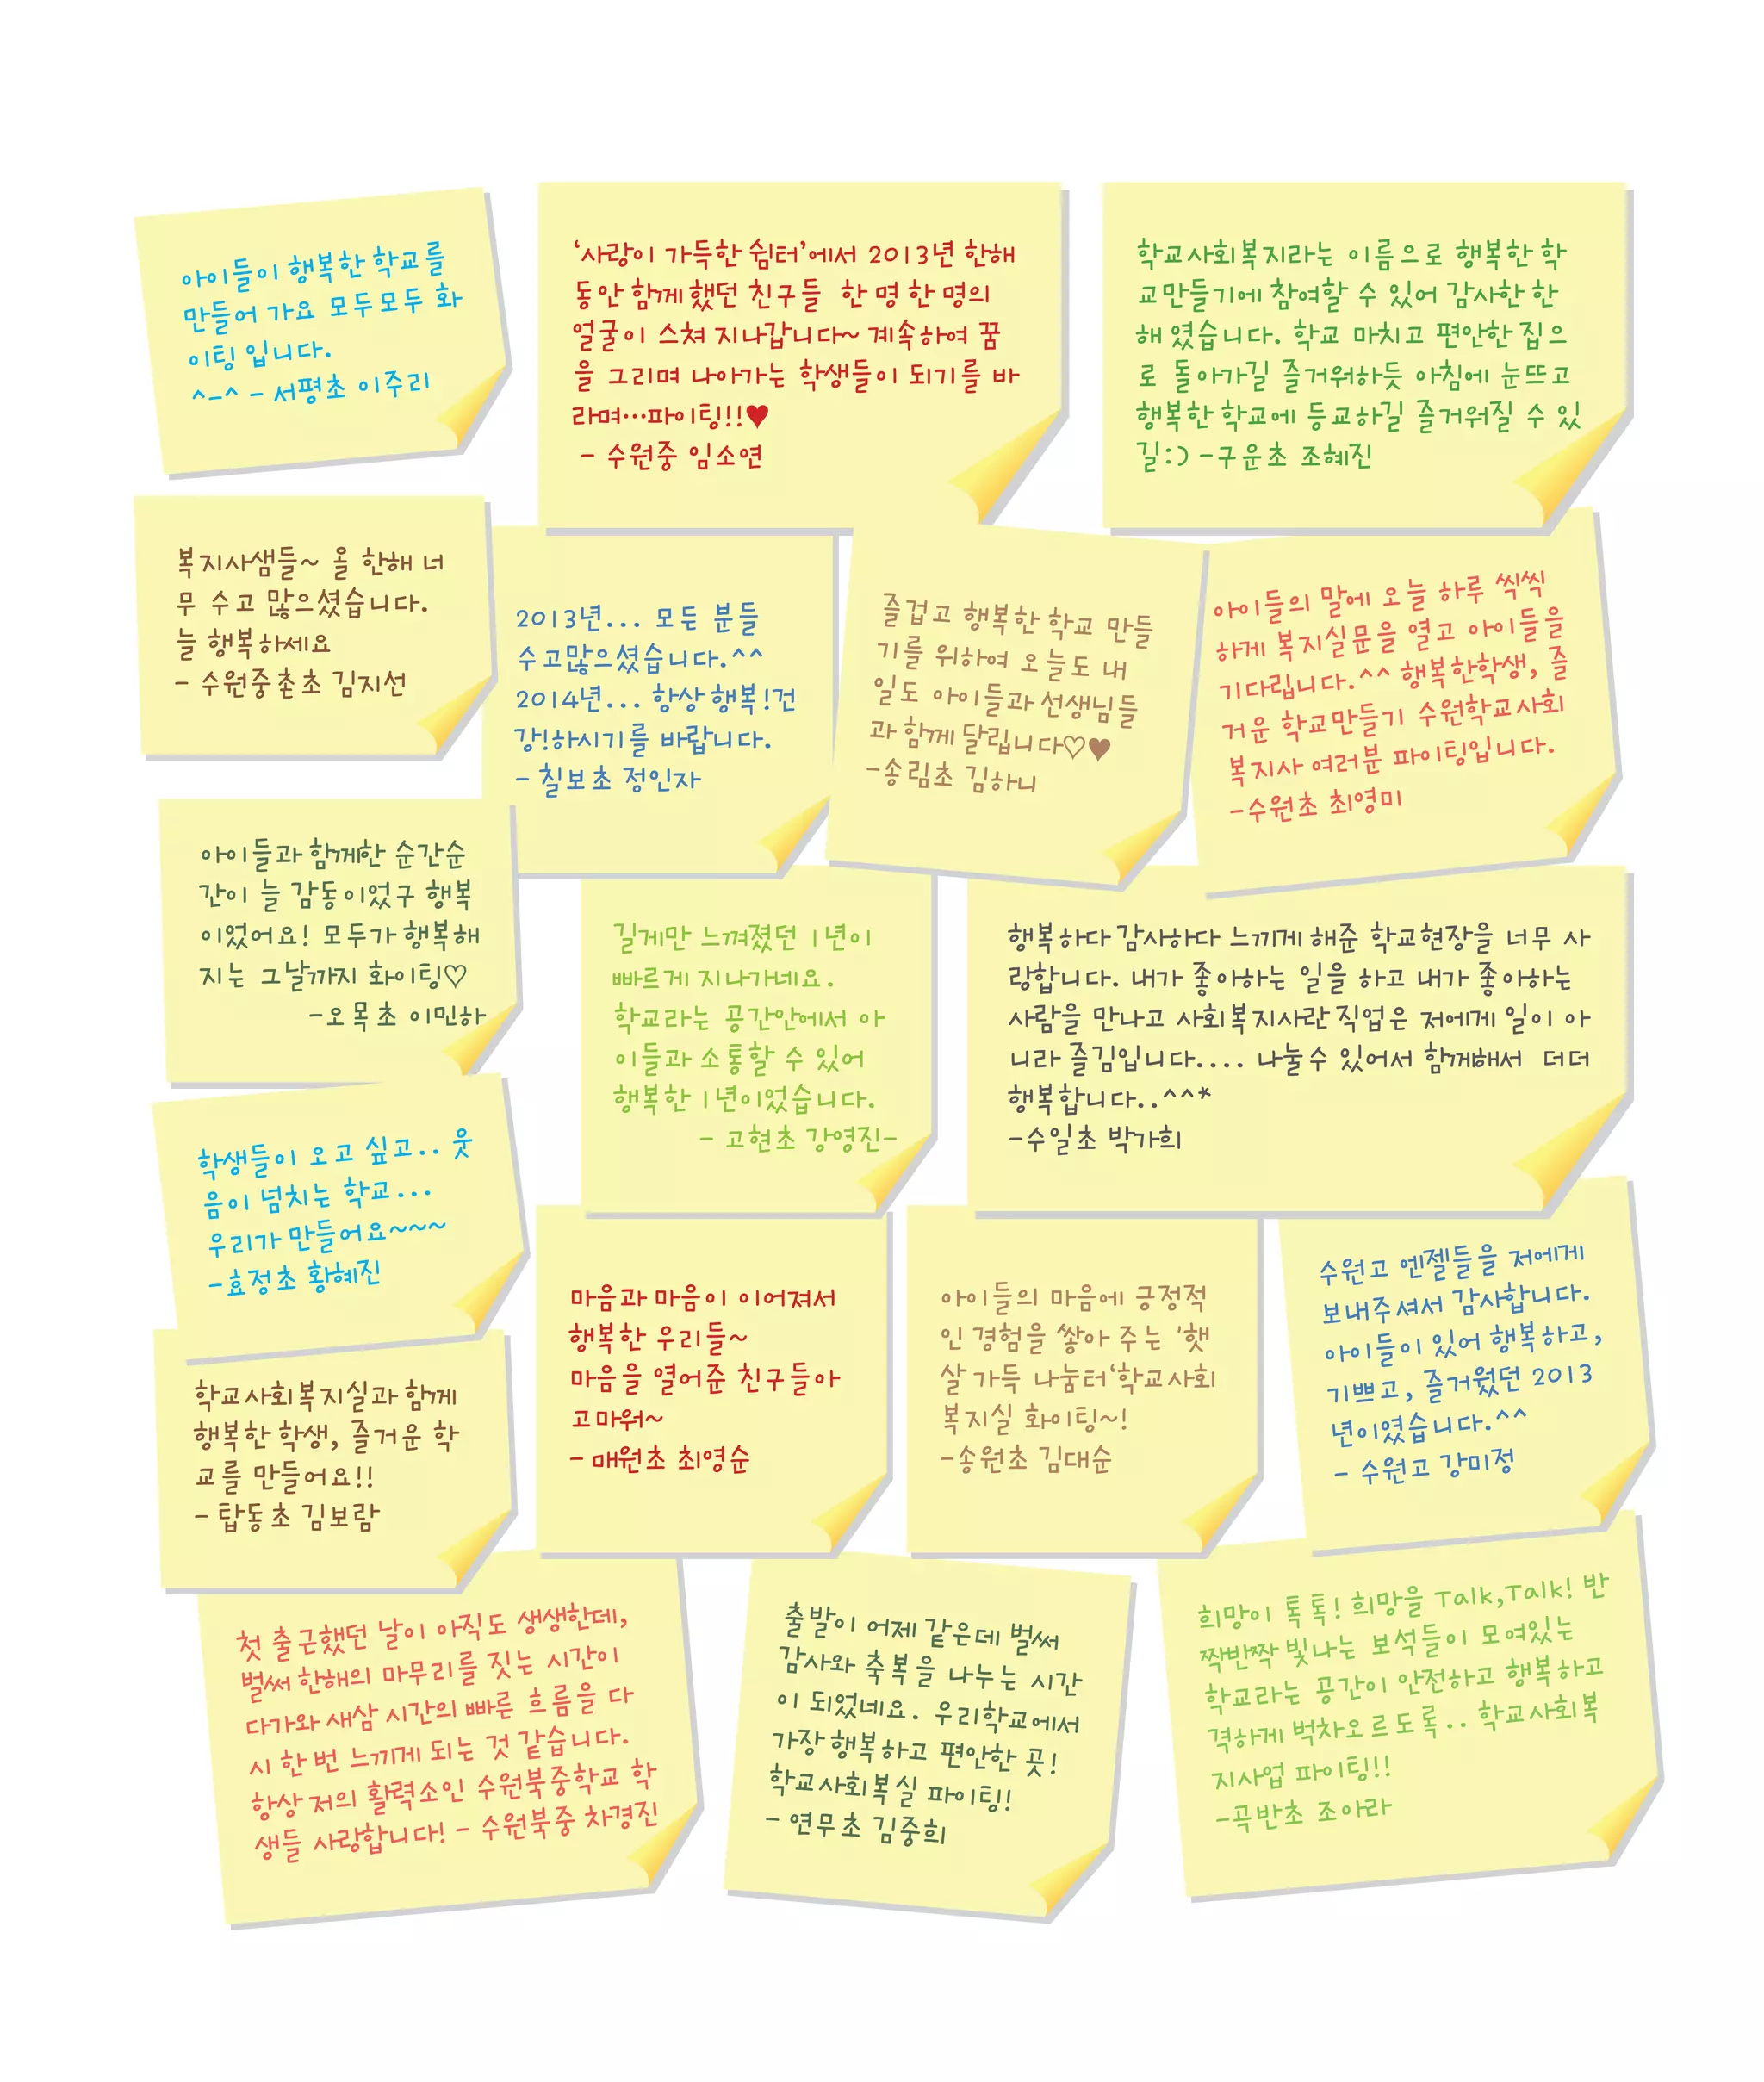 아이들이 행복한 학교를
만들어 가요 모두모두 화
이팅 입니다.
^-^ - 서평초 이주리
‘사랑이 가득한 쉼터’에서 2013년 한해
동안 함께 했던 친구들 한 명 한 명의
얼굴이 스쳐 지나갑니다~ 계속하여 꿈
을 그리며 나아가는 학생들이 되기를 바
라며…파이팅!!!♥
- 수원중 임소연
학교사회복지라는 이름으로 행복한 학
교만들기에 참여할 수 있어 감사한 한
해 였습니다. 학교 마치고 편안한 집으
로 돌아가길 즐거워하듯 아침에 눈뜨고
행복한 학교에 등교하길 즐거워질 수 있
길:) -구운초 조혜진
복지사샘들~ 올 한해 너
무 수고 많으셨습니다.
늘 행복하세요
- 수원중촌초 김지선
2013년... 모든 분들
수고많으셨습니다.^^
2014년... 항상 행복!건
강!하시기를 바랍니다.
- 칠보초 정인자
즐겁고 행복한 학교 만들
기를 위하여 오늘도 내
일도 아이들과 선생님들
과 함께 달립니다♡♥
-송림초 김하니
아이들의 말에 오늘 하루 씩씩
하게 복지실문을 열고 아이들을
기다립니다.^^ 행복한학생, 즐
거운 학교만들기 수원학교사회
복지사 여러분 파이팅입니다.
-수원초 최영미
아이들과 함께한 순간순
간이 늘 감동이었구 행복
이었어요! 모두가 행복해
지는 그날까지 화이팅♡
-오목초 이민하
길게만 느껴졌던 1년이
빠르게 지나가네요.
학교라는 공간안에서 아
이들과 소통할 수 있어
행복한 1년이었습니다.
- 고현초 강영진-
행복하다 감사하다 느끼게 해준 학교현장을 너무 사
랑합니다. 내가 좋아하는 일을 하고 내가 좋아하는
사람을 만나고 사회복지사란 직업은 저에게 일이 아
니라 즐김입니다.... 나눌수 있어서 함께해서 더더
행복합니다..^^*
-수일초 박가희
학생들이 오고 싶고.. 웃
음이 넘치는 학교...
우리가 만들어요~~~
-효정초 황혜진
마음과 마음이 이어져서
행복한 우리들~
마음을 열어준 친구들아
고마워~
- 매원초 최영순
아이들의 마음에 긍정적
인 경험을 쌓아 주는 '햇
살 가득 나눔터‘학교사회
복지실 화이팅~!
-송원초 김대순
수원고 엔젤들을 저에게
보내주셔서 감사합니다.
아이들이 있어 행복하고,
기쁘고, 즐거웠던 2013
년이였습니다.^^
- 수원고 강미정
학교사회복지실과 함께
행복한 학생, 즐거운 학
교를 만들어요!!
- 탑동초 김보람
첫 출근했던 날이 아직도 생생한데,
벌써 한해의 마무리를 짓는 시간이
다가와 새삼 시간의 빠른 흐름을 다
시 한 번 느끼게 되는 것 같습니다.
항상 저의 활력소인 수원북중학교 학
생들 사랑합니다! - 수원북중 차경진
출발이 어제 같은데 벌써
감사와 축복을 나누는 시간
이 되었네요. 우리학교에서
가장 행복하고 편안한 곳!
학교사회복실 파이팅!
- 연무초 김중희
희망이 톡톡! 희망을 Talk,Talk! 반
짝반짝 빛나는 보석들이 모여있는
학교라는 공간이 안전하고 행복하고
격하게 벅차오르도록.. 학교사회복
지사업 파이팅!!
-곡반초 조아라